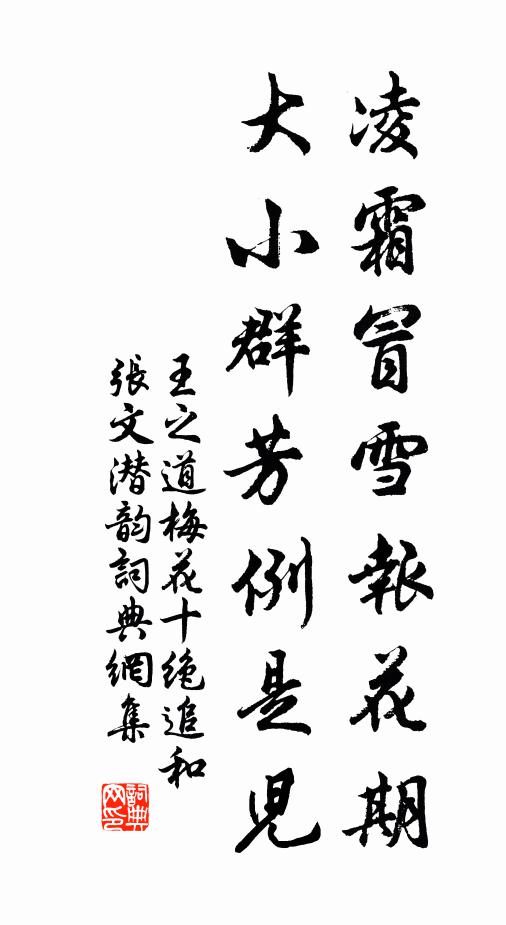 凌霜冒雪報花期
大小群芳例是児
王之道梅花十绝追和
張文潜韵詞典網集
詞典网印